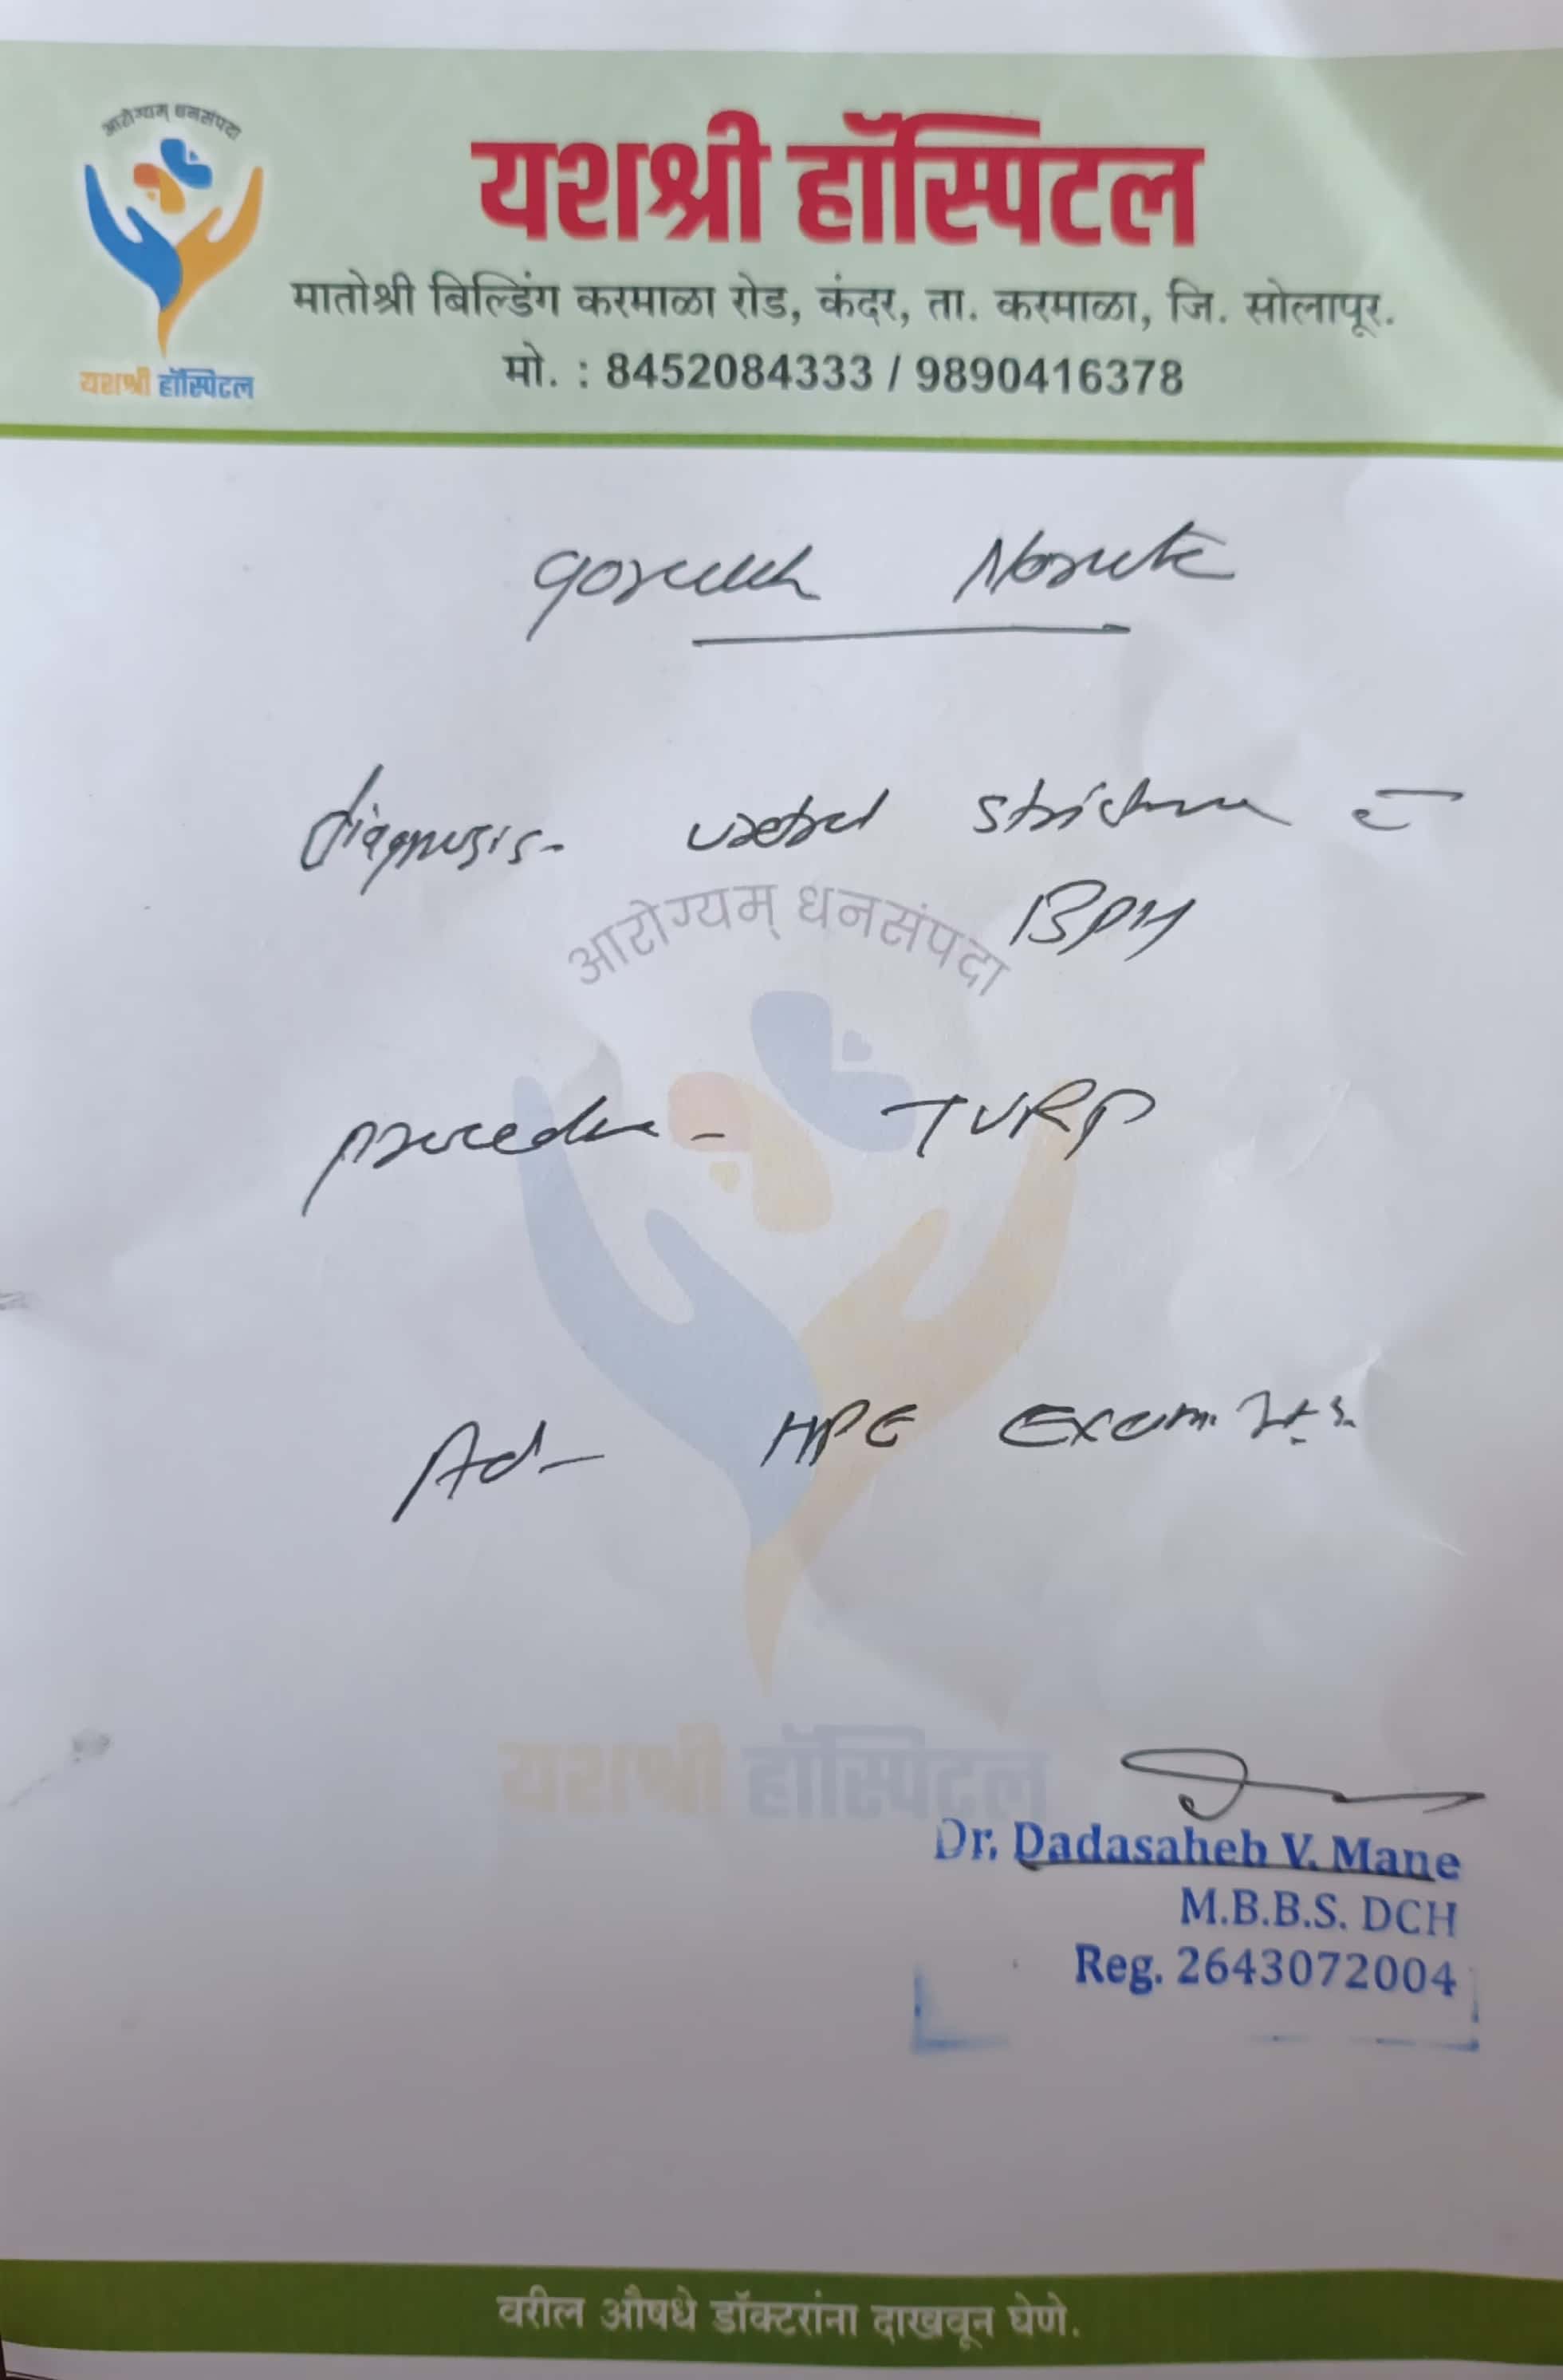 आरोग्यम् धनसंपदा
यशश्री हॉस्पिटल
यशश्री हॉस्पिटल
मातोश्री बिल्डिंग करमाळा रोड, कंदर, ता. करमाळा, जि. सोलापूर.
मो. : 8452084333 / 9890416378
diagnosis- stricture c̄
BPH
आरोग्यम् धनसंपदा
procedure - TURP
Ad- HPE Exam.
यशश्री हॉस्पिटल
Dr. Dadasaheb V. Mane
M.B.B.S. DCH
Reg. 2643072004
वरील औषधे डॉक्टरांना दाखवून घेणे.